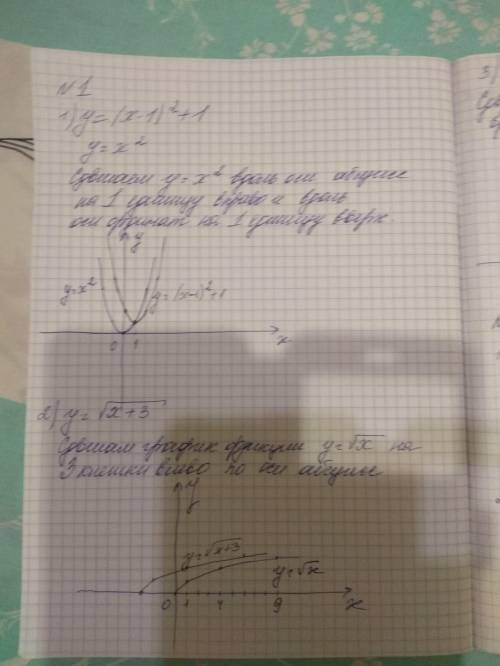 №1
1) y=(x-1)²+1
y=x²
Сдвигаем y=x² вдоль оси абцисс
на 1 единицу вправо и вдоль
оси ординат на 1 единицу вверх.
y
y=x²
y=(x-1)²+1
0 1 x
2) y=√x+3
Сдвигам график функции y=√x на
3 клетки влево по оси абцисс
y
y=√x+3
y=√x
0 1 4 9 x
3)